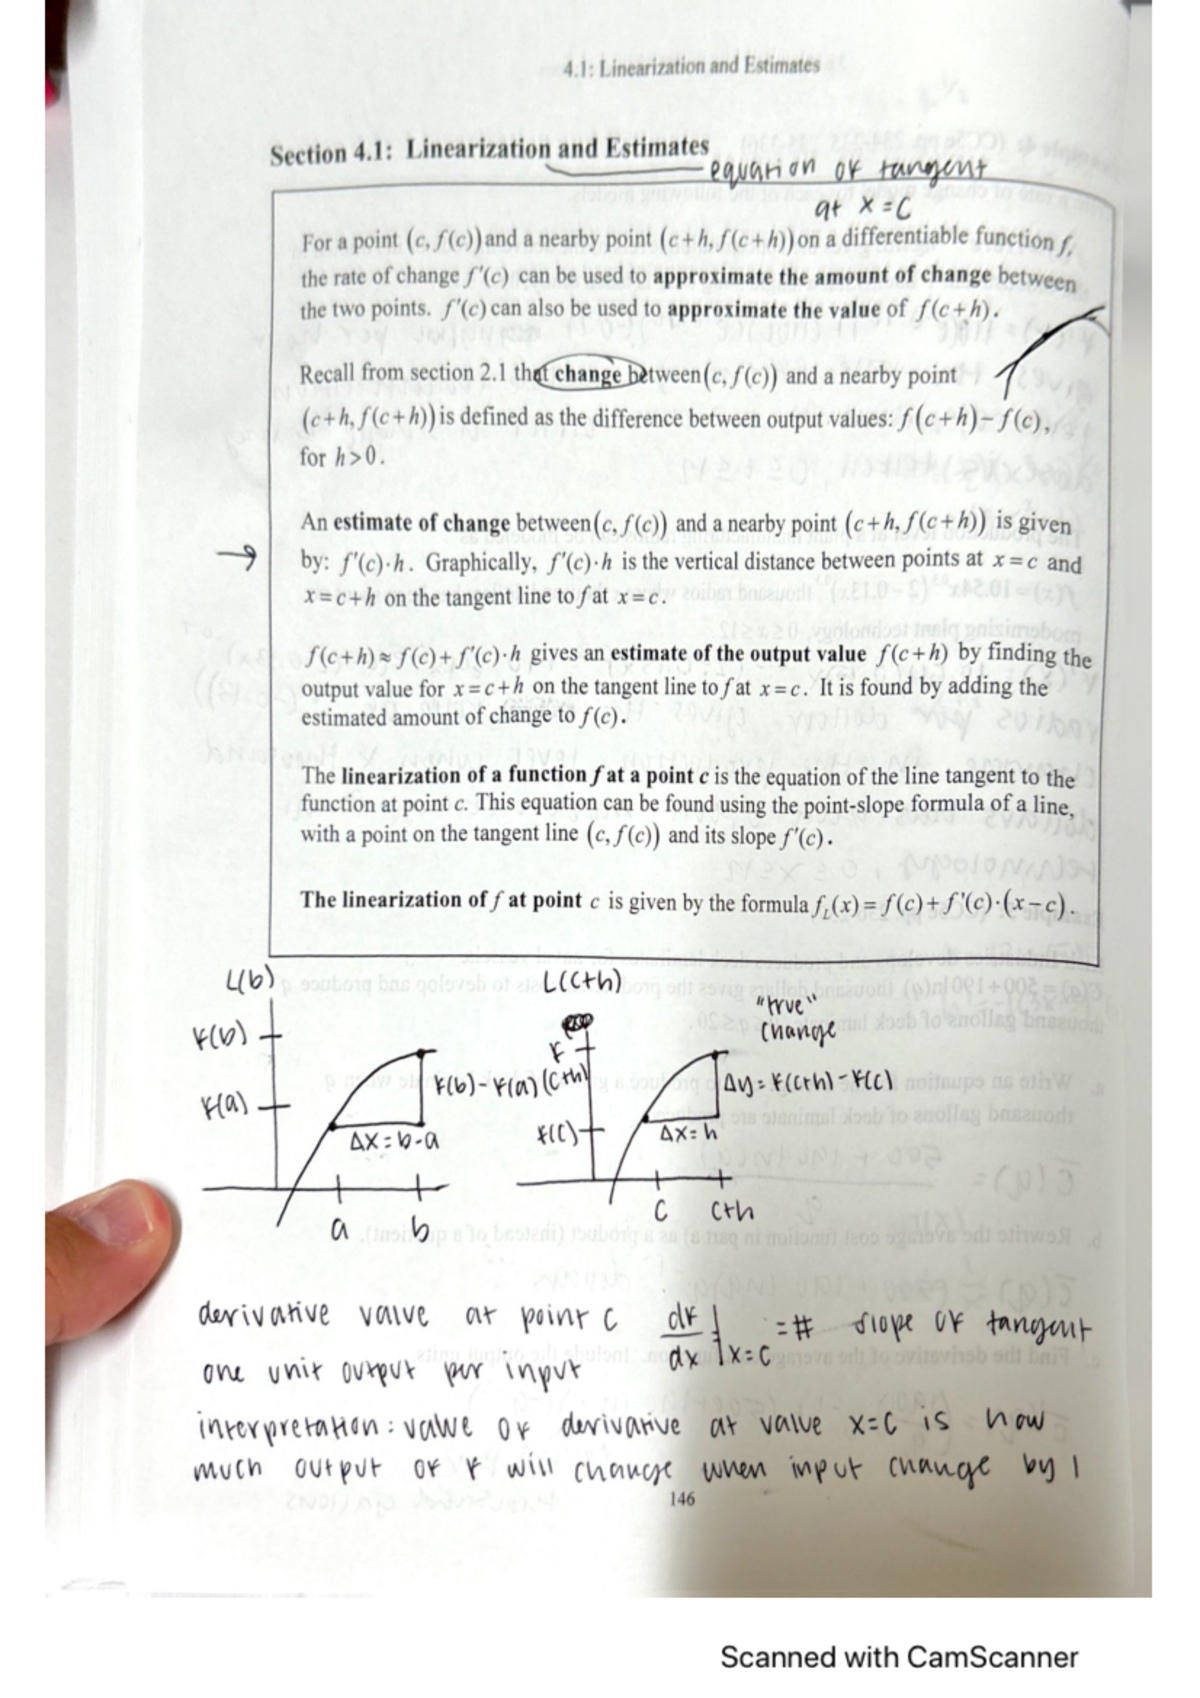 4.1: Linearization and Estimates
Section 4.1: Linearization and Estimates
equation of tangent
at x = C
For a point (c, f(c)) and a nearby point (c+h, f(c+h)) on a differentiable function f,
the rate of change f'(c) can be used to approximate the amount of change between
the two points. f'(c) can also be used to approximate the value of f(c+h).
Recall from section 2.1 that change between (c, f(c)) and a nearby point
(c+h, f(c+h)) is defined as the difference between output values: f(c+h)−f(c),
for h>0.
An estimate of change between (c, f(c)) and a nearby point (c+h, f(c+h)) is given
→ by: f'(c)·h. Graphically, f'(c)·h is the vertical distance between points at x=c and
x=c+h on the tangent line to f at x=c.
f(c+h)≈f(c)+f'(c)·h gives an estimate of the output value f(c+h) by finding the
output value for x=c+h on the tangent line to f at x=c. It is found by adding the
estimated amount of change to f(c).
The linearization of a function f at a point c is the equation of the line tangent to the
function at point c. This equation can be found using the point-slope formula of a line,
with a point on the tangent line (c, f(c)) and its slope f'(c).
The linearization of f at point c is given by the formula f_L(x)=f(c)+f'(c)·(x−c).
L(b)
f(b)
f(a)
f(b)-f(a)
Δx=b-a
a b
L(c+h)
"true"
change
f
(c+h)
f(c)
Δy=f(c+h)-f(c)
Δx=h
c c+h
derivative value at point c df/dx | x=c = # slope of tangent
one unit output per input
interpretation: value of derivative at value x=c is how
much output of f will change when input change by 1
146
Scanned with CamScanner